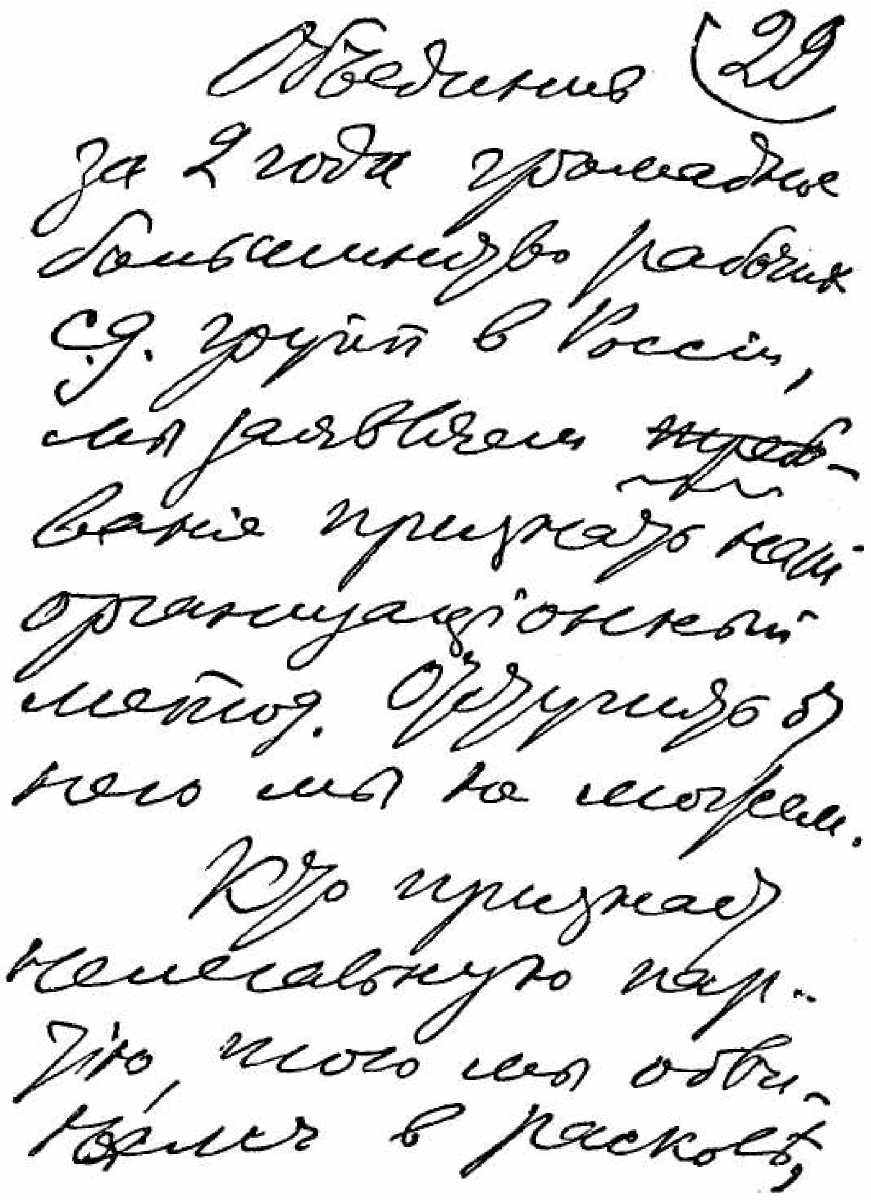 Объединив (29
за 2 года громадное
большинство рабочих
с.д. групп в Россіи,
мы заявляем требо-
ванія признать наш
организаціонный
метод. Отступить от
него мы не можем.
Кто признает
нелегальную пар-
тію, того мы обви-
няем в расколѣ,